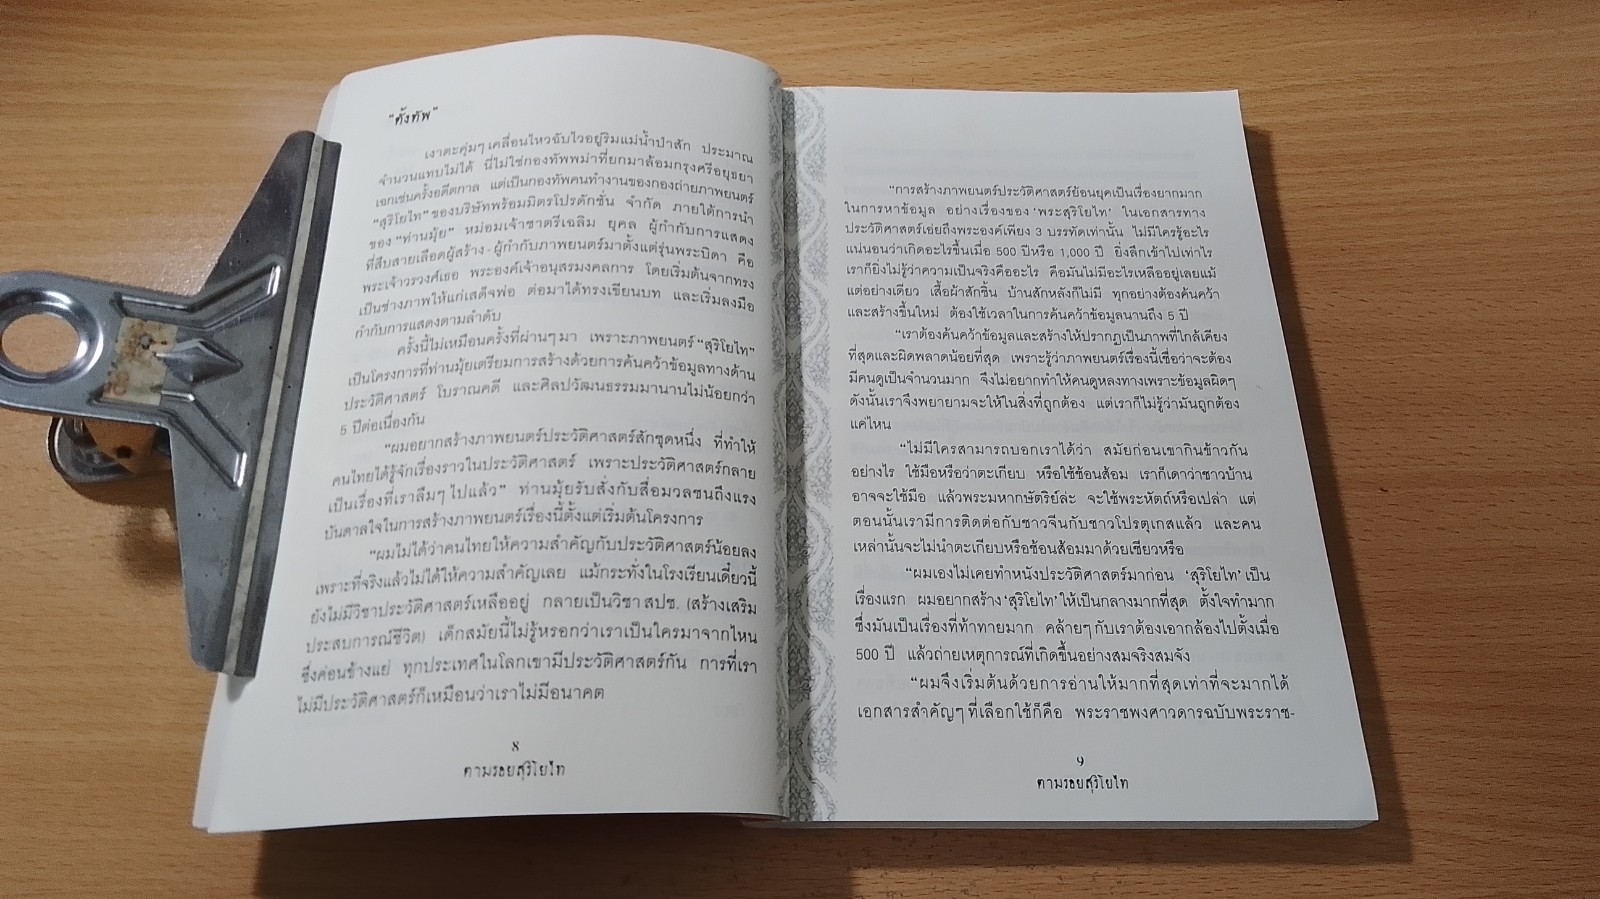 "ตั้งทัพ"
เงาตะคุ่มๆ เคลื่อนไหวฉับไวอยู่ริมแม่น้ำป่าสัก ประมาณ
จำนวนแทบไม่ได้ นี่ไม่ใช่กองทัพพม่าที่ยกมาล้อมกรุงศรีอยุธยา
เฉกเช่นครั้งอดีตกาล แต่เป็นกองทัพคนทำงานของกองถ่ายภาพยนตร์
"สุริโยไท" ของบริษัทพร้อมมิตรโปรดักชั่น จำกัด ภายใต้การนำ
ของ "ท่านมุ้ย" หม่อมเจ้าชาตรีเฉลิม ยุคล ผู้กำกับการแสดง
ที่สืบสายเลือดผู้สร้าง - ผู้กำกับภาพยนตร์มาตั้งแต่รุ่นพระบิดา คือ
พระเจ้าวรวงศ์เธอ พระองค์เจ้าอนุสรมงคลการ โดยเริ่มต้นจากทรง
เป็นช่างภาพให้แก่เสด็จพ่อ ต่อมาได้ทรงเขียนบท และเริ่มลงมือ
กำกับการแสดงตามลำดับ
ครั้งนี้ไม่เหมือนครั้งที่ผ่านๆ มา เพราะภาพยนตร์ "สุริโยไท"
เป็นโครงการที่ท่านมุ้ยเตรียมการสร้างด้วยการค้นคว้าข้อมูลทางด้าน
ประวัติศาสตร์ โบราณคดี และศิลปวัฒนธรรมมานานไม่น้อยกว่า
5 ปีต่อเนื่องกัน
"ผมอยากสร้างภาพยนตร์ประวัติศาสตร์สักชุดหนึ่ง ที่ทำให้
คนไทยได้รู้จักเรื่องราวในประวัติศาสตร์ เพราะประวัติศาสตร์กลาย
เป็นเรื่องที่เราลืมๆ ไปแล้ว" ท่านมุ้ยรับสั่งกับสื่อมวลชนถึงแรง
บันดาลใจในการสร้างภาพยนตร์เรื่องนี้ตั้งแต่เริ่มต้นโครงการ
"ผมไม่ได้ว่าคนไทยให้ความสำคัญกับประวัติศาสตร์น้อยลง
เพราะที่จริงแล้วไม่ได้ให้ความสำคัญเลย แม้กระทั่งในโรงเรียนเดี๋ยวนี้
ยังไม่มีวิชาประวัติศาสตร์เหลืออยู่ กลายเป็นวิชา สปช. (สร้างเสริม
ประสบการณ์ชีวิต) เด็กสมัยนี้ไม่รู้หรอกว่าเราเป็นใครมาจากไหน
ซึ่งค่อนข้างแย่ ทุกประเทศในโลกเขามีประวัติศาสตร์กัน การที่เรา
ไม่มีประวัติศาสตร์ก็เหมือนว่าเราไม่มีอนาคต
8
ตามรอยสุริโยไท
"การสร้างภาพยนตร์ประวัติศาสตร์ย้อนยุคเป็นเรื่องยากมาก
ในการหาข้อมูล อย่างเรื่องของ 'พระสุริโยไท' ในเอกสารทาง
ประวัติศาสตร์เอ่ยถึงพระองค์เพียง 3 บรรทัดเท่านั้น ไม่มีใครรู้อะไร
แน่นอนว่าเกิดอะไรขึ้นเมื่อ 500 ปีหรือ 1,000 ปี ยิ่งลึกเข้าไปเท่าไร
เราก็ยิ่งไม่รู้ว่าความเป็นจริงคืออะไร คือมันไม่มีอะไรเหลืออยู่เลยแม้
แต่อย่างเดียว เสื้อผ้าสักชิ้น บ้านสักหลังก็ไม่มี ทุกอย่างต้องค้นคว้า
และสร้างขึ้นใหม่ ต้องใช้เวลาในการค้นคว้าข้อมูลนานถึง 5 ปี
"เราต้องค้นคว้าข้อมูลและสร้างให้ปรากฏเป็นภาพที่ใกล้เคียง
ที่สุดและผิดพลาดน้อยที่สุด เพราะรู้ว่าภาพยนตร์เรื่องนี้เชื่อว่าจะต้อง
มีคนดูเป็นจำนวนมาก จึงไม่อยากทำให้คนดูหลงทางเพราะข้อมูลผิดๆ
ดังนั้นเราจึงพยายามจะให้ในสิ่งที่ถูกต้อง แต่เราก็ไม่รู้ว่ามันถูกต้อง
แค่ไหน
"ไม่มีใครสามารถบอกเราได้ว่า สมัยก่อนเขากินข้าวกัน
อย่างไร ใช้มือหรือว่าตะเกียบ หรือใช้ช้อนส้อม เราก็เดาว่าชาวบ้าน
อาจจะใช้มือ แล้วพระมหากษัตริย์ล่ะ จะใช้พระหัตถ์หรือเปล่า แต่
ตอนนั้นเรามีการติดต่อกับชาวจีนกับชาวโปรตุเกสแล้ว และคน
เหล่านั้นจะไม่นำตะเกียบหรือช้อนส้อมมาด้วยเชียวหรือ
"ผมเองไม่เคยทำหนังประวัติศาสตร์มาก่อน 'สุริโยไท' เป็น
เรื่องแรก ผมอยากสร้าง 'สุริโยไท' ให้เป็นกลางมากที่สุด ตั้งใจทำมาก
ซึ่งมันเป็นเรื่องที่ท้าทายมาก คล้ายๆ กับเราต้องเอากล้องไปตั้งเมื่อ
500 ปี แล้วถ่ายเหตุการณ์ที่เกิดขึ้นอย่างสมจริงสมจัง
"ผมจึงเริ่มต้นด้วยการอ่านให้มากที่สุดเท่าที่จะมากได้
เอกสารสำคัญๆ ที่เลือกใช้ก็คือ พระราชพงศาวดารฉบับพระราช-
9
ตามรอยสุริโยไท